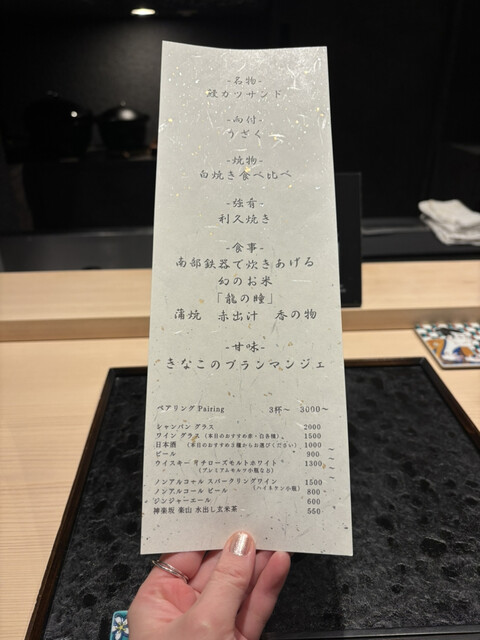 -名物-
鰻カツサンド
-向付-
うざく
-焼物-
白焼き食べ比べ
-強肴-
利久焼き
-食事-
南部鉄器で炊きあげる
幻のお米
「龍の瞳」
蒲焼 赤出汁 香の物
-甘味-
きなこのブランマンジェ
ペアリング Pairing 3杯〜 3000〜
シャンパン グラス 2000
ワイン グラス (本日のおすすめ赤・白各種) 1500
日本酒 (本日のおすすめ3種からお選びください) 1000 〜
ビール 900 〜
ウイスキー リチローズモルトホワイト 1300
(プレミアムモルツ小瓶など)
ノンアルコール スパークリングワイン 1500
ノンアルコール ビール (ハイネケン小瓶) 800
ジンジャーエール 600
神楽坂 楽山 水出し玄米茶 550